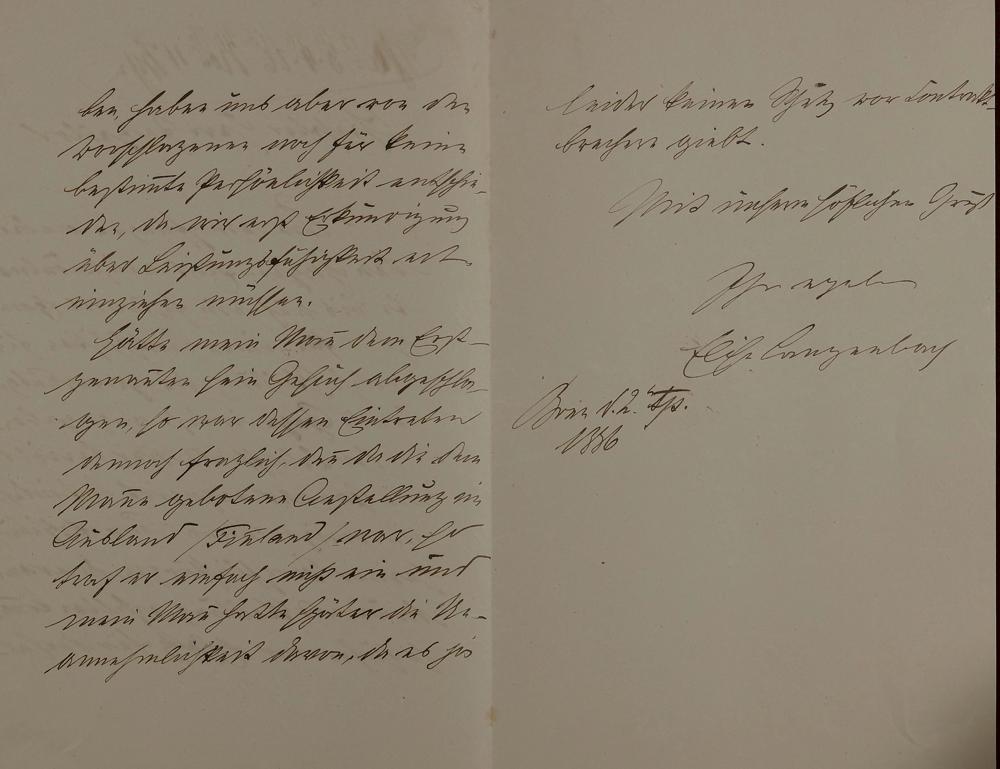 ben, haben uns aber von den
Vorschlagenen noch für keine
bestim̄te Persönlichkeit entschie-
den, da wir erst Erkundigung
über Leistungsfähigkeit
einziehen müssen.
Hätte mein Man̄ dem Erst-
genan̄ten sein Gesuch abgeschla-
gen, so war dessen Eintreten
dennoch fraglich, den̄ da die dem
Man̄e gebotene Anstellung im
Ausland /Finland/ war, so
traf er einfach nicht ein und
mein Man̄ hatte später die Un-
annehmlichkeit davon, da es ja
leider keinen Schutz vor Contrakt-
brechern giebt.
Mit höflichen Gruß
Ihr ergeben
Elise Langenbach
d. 2. Sp.
1886